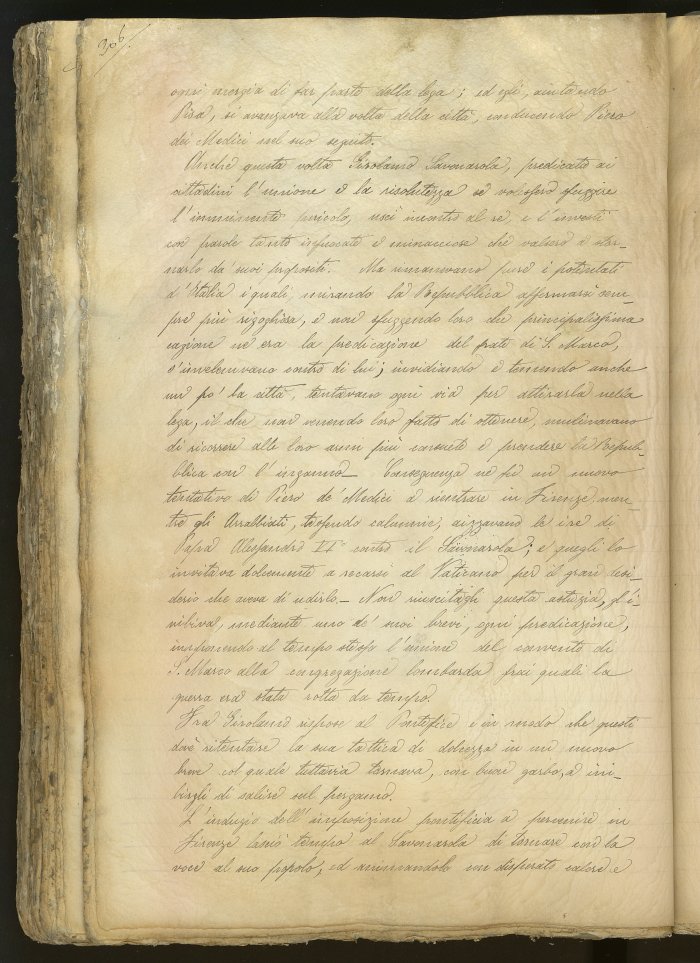 306.
ogni energia di far parte della lega; ed egli, aiutando
Pisa, si avanzava alla volta della città, conducendo Piero
dei Medici nel suo seguito.
Anche questa volta Girolamo Savonarola, predicato ai
cittadini l'unione e la risolutezza se volessero sfuggire
l'imminente pericolo, uscì incontro al re, e l'investì
con parole tanto infuocate e minacciose che valsero a stor-
narlo da' suoi propositi. Ma rimanevano pure i potentati
d'Italia i quali, mirando la Repubblica affermarsi sem-
pre più rigogliosa, e non sfuggendo loro che principalissima
cagione ne era la predicazione del frate di S. Marco,
s'invelenivano contro di lui; invidiando e temendo anche
un po' la città, tentavano ogni via per attirarla nella
lega, il che non venendo loro fatto di ottenere, mulinavano
di ricorrere alle loro armi più consuete e prendere la Repub-
blica con l'inganno. Conseguenza ne fu un nuovo
tentativo di Piero de' Medici a rientrare in Firenze, men-
tre gli Arrabbiati, tessendo calunnie, aizzavano le ire di
Papa Alessandro VI° contro il Savonarola; e quegli lo
invitava dolcemente a recarsi al Vaticano per il gran desi-
derio che aveva di udirlo. Non riuscitagli questa astuzia, gl'i-
nibiva, mediante uno de' suoi brevi, ogni predicazione,
imponendo al tempo stesso l'unione del convento di
S. Marco alla congregazione lombarda frai quali la
guerra era stata rotta da tempo.
Fra Girolamo rispose al Pontefice e in modo che questi
dovè ritentare la sua tattica di dolcezza in un nuovo
breve col quale tuttavia tornava, con buon garbo, a ini-
birgli di salire sul pergamo.
L'indugio dell'imposizione pontificia a pervenire in
Firenze lasciò tempo al Savonarola di tornare con la
voce al suo popolo, ed animandolo un disperato valore e